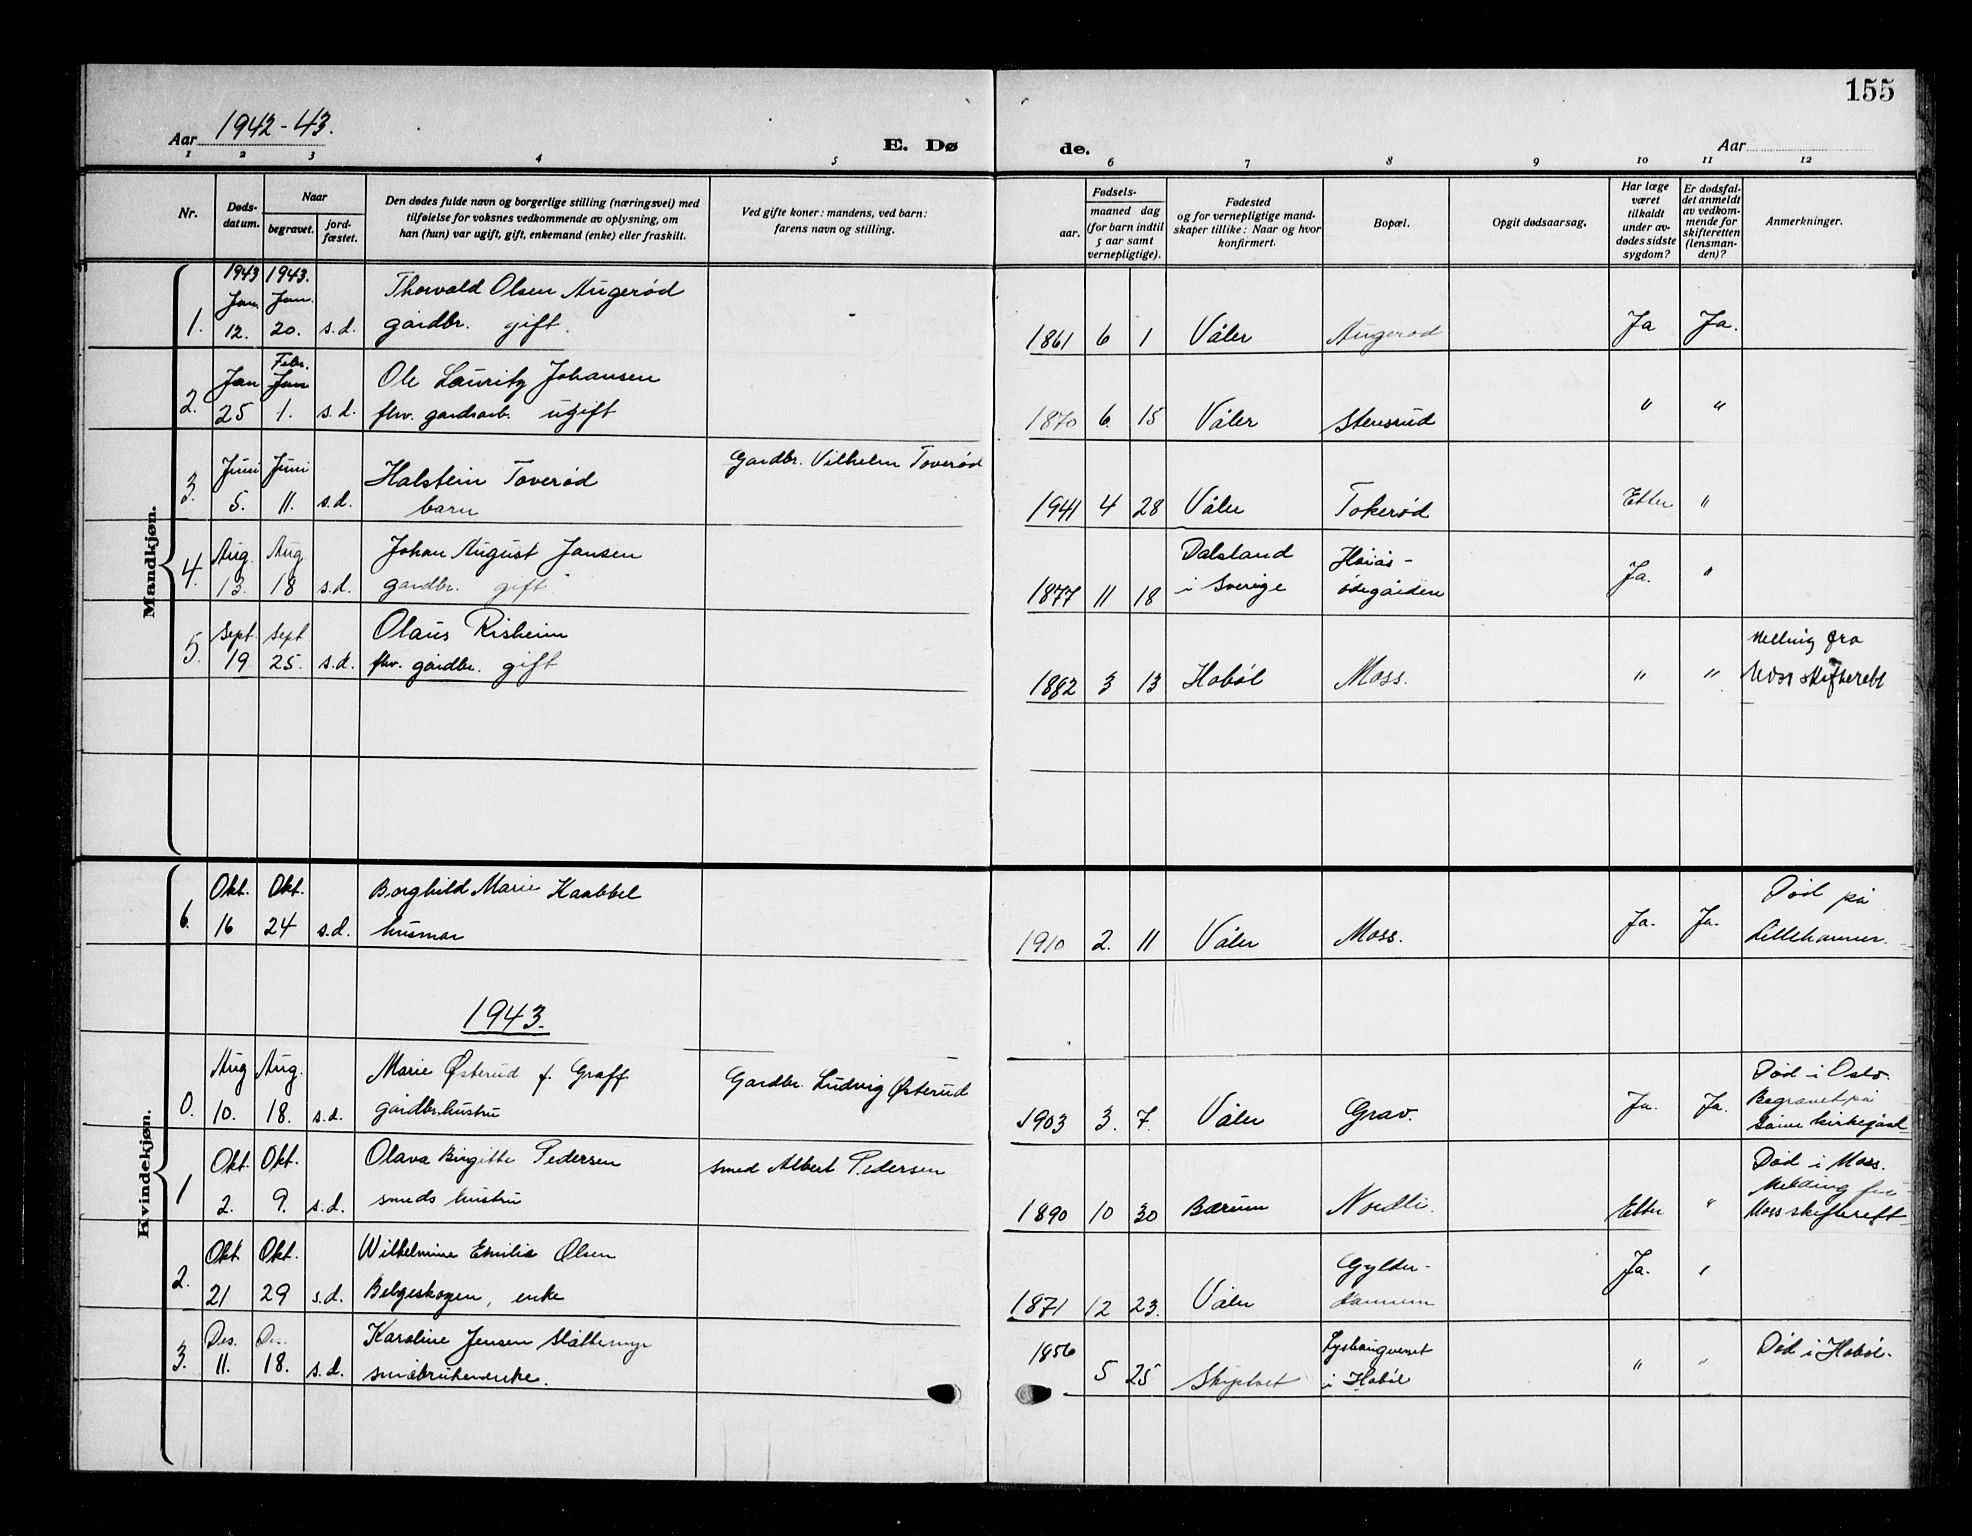 155
Aar 1942-43.
E. Dø
de.
Aar
1 2 3 4 5 6 7 8 9 10 11 12
Nr.
Døds-
datum.
Naar
begravet.
jord-
fæstet.
Den dødes fulde navn og borgerlige stilling (næringsvei) med
tilføielse for voksnes vedkommende av oplysning, om
han (hun) var ugift, gift, enkemand (enke) eller fraskilt.
Ved gifte koner: mandens, ved barn:
farens navn og stilling.
Fødsels-
aar.
maaned dag
(for barn indtil
5 aar samt
vernepligtige).
Fødested
og for vernepligtige mand-
skaper tillike: Naar og hvor
konfirmert.
Bopæl.
Opgit dødsaarsag.
Har læge
været
tilkaldt
under av-
dødes sidste
sygdom?
Er dødsfal-
det anmeldt
av vedkom-
mende for
skifteretten
(lensman-
den)?
Anmerkninger.
Mandkjøn.
1943 1943.
Jan. Jan. Thorvald Olsen Augerød
1. 12. 20. s.d. gårdbr. gift. 1861 6 1 Våler Augerød Ja Ja.
Febr.
Jan Jan Ole Lauritz Johansen
2. 25 1. s.d. fhv. gardsarb. ugift 1870 6. 15 Våler Stensrud " "
Juni Juni Halstein Toverød Gardbr. Vilhelm Toverød
3. 5. 11. s.d. barn 1941 4 28 Våler Tokerød Etter "
Aug. Aug Johan August Jansen Dalsland
4. 13. 18 s.d. gardbr. gift 1877 11 18 i Sverige ødegården Ja. "
Sept. Sept Olaus Risheim Melding fra
5. 19 25. s.d. fhv. gårdbr. gift 1882 3 13 Hobøl Moss. " " Moss skifterett
Kvindekjøn.
Okt. Okt. Borghild Marie Kaabbel Død på
6. 16 24 s.d. husmor 1910 2. 11 Våler Moss. Ja. Ja. Lillehammer.
1943.
Aug Aug. Marie Østerud f. Graff Gardbr. Ludvig Østerud Død i Oslo.
0. 10. 18. s.d. gårdbr.hustru 1903 3. 7. Våler Grav. Ja. Ja. Begravet på
kirkegård
Okt. Okt. Olava Birgitte Pedersen smed Albert Pedersen Død i Moss.
1 2. 9. s.d. smeds hustru 1890 10 30 Bærum Nordli. Etter " Melding fra
Moss skifterett
Okt. Okt. Wilhelmine Emilie Olsen Gylder-
2. 21 29 s.d. Belgeskogen, enke 1871 12 23. Våler Ja. "
Des. Des. Karoline Jensen Slåttemyr 1856
3. 11. 18. s.d. småbrukerenke. 5 25 Skiptvet i Hobøl " " Død i Hobøl.